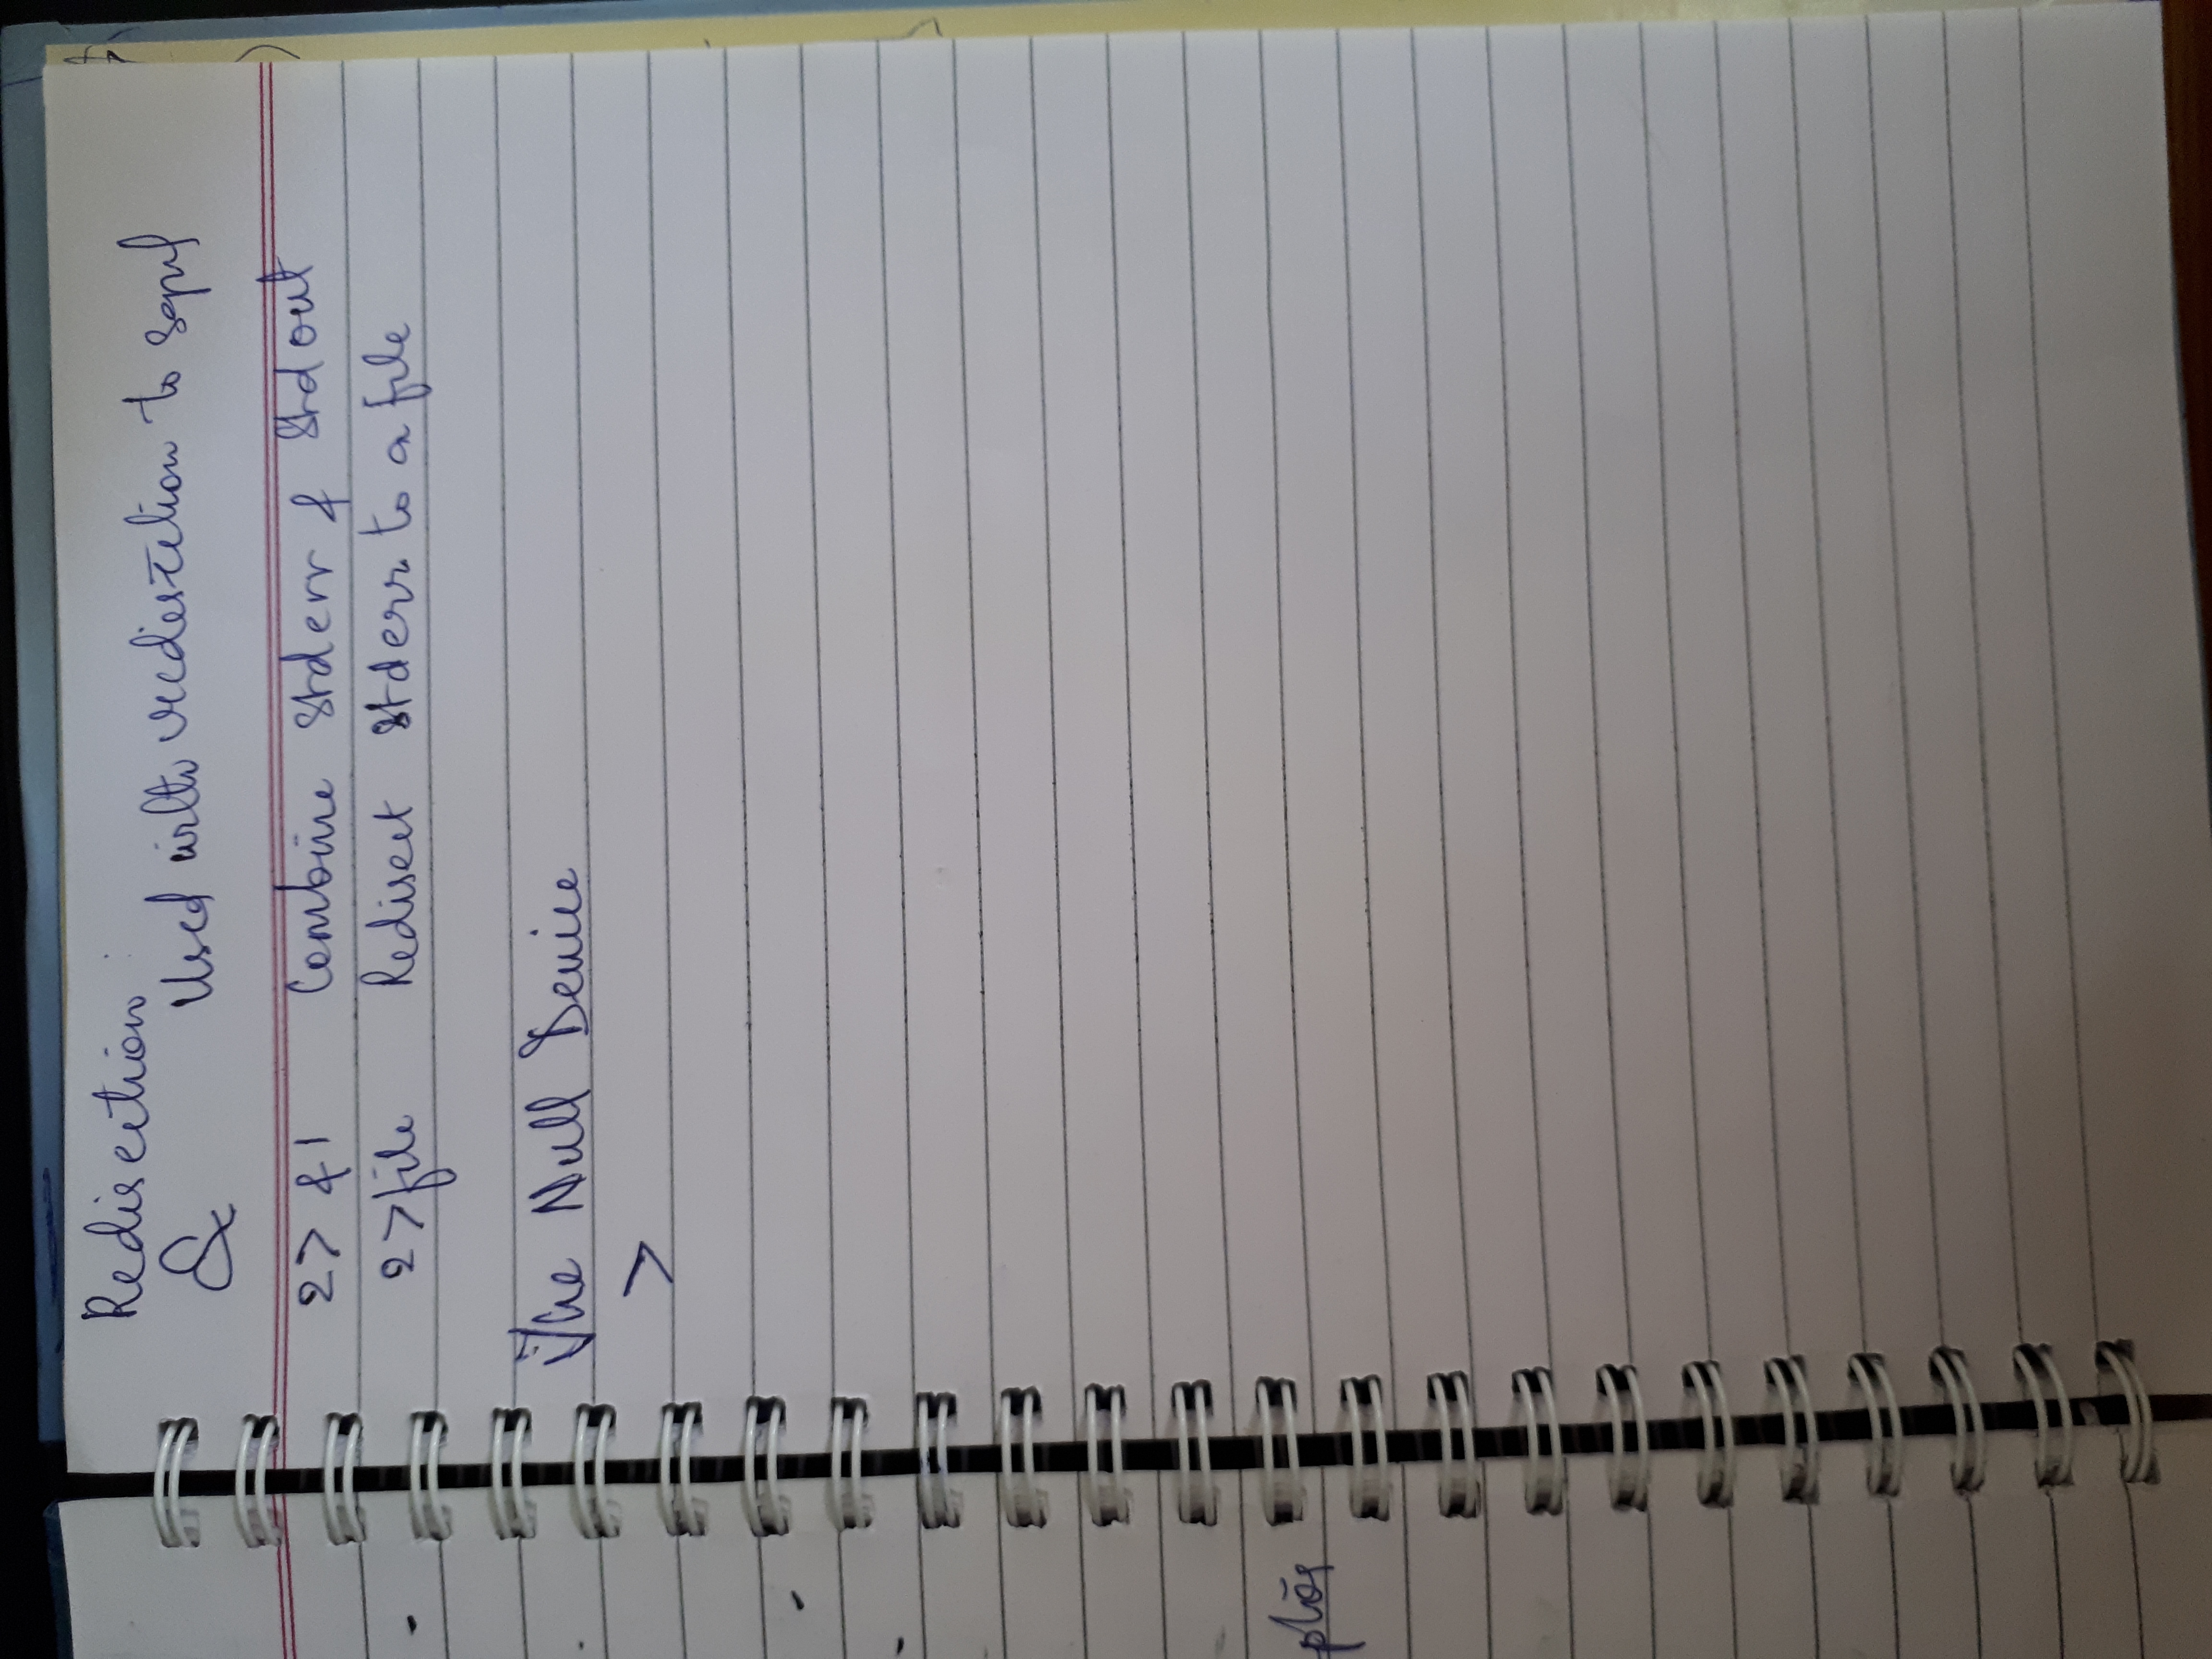 Redirection
& Used with redirection to
2> &1 Combine Stderr & Stdout
2>file Redirect Stderr to a file
The Null Device
>